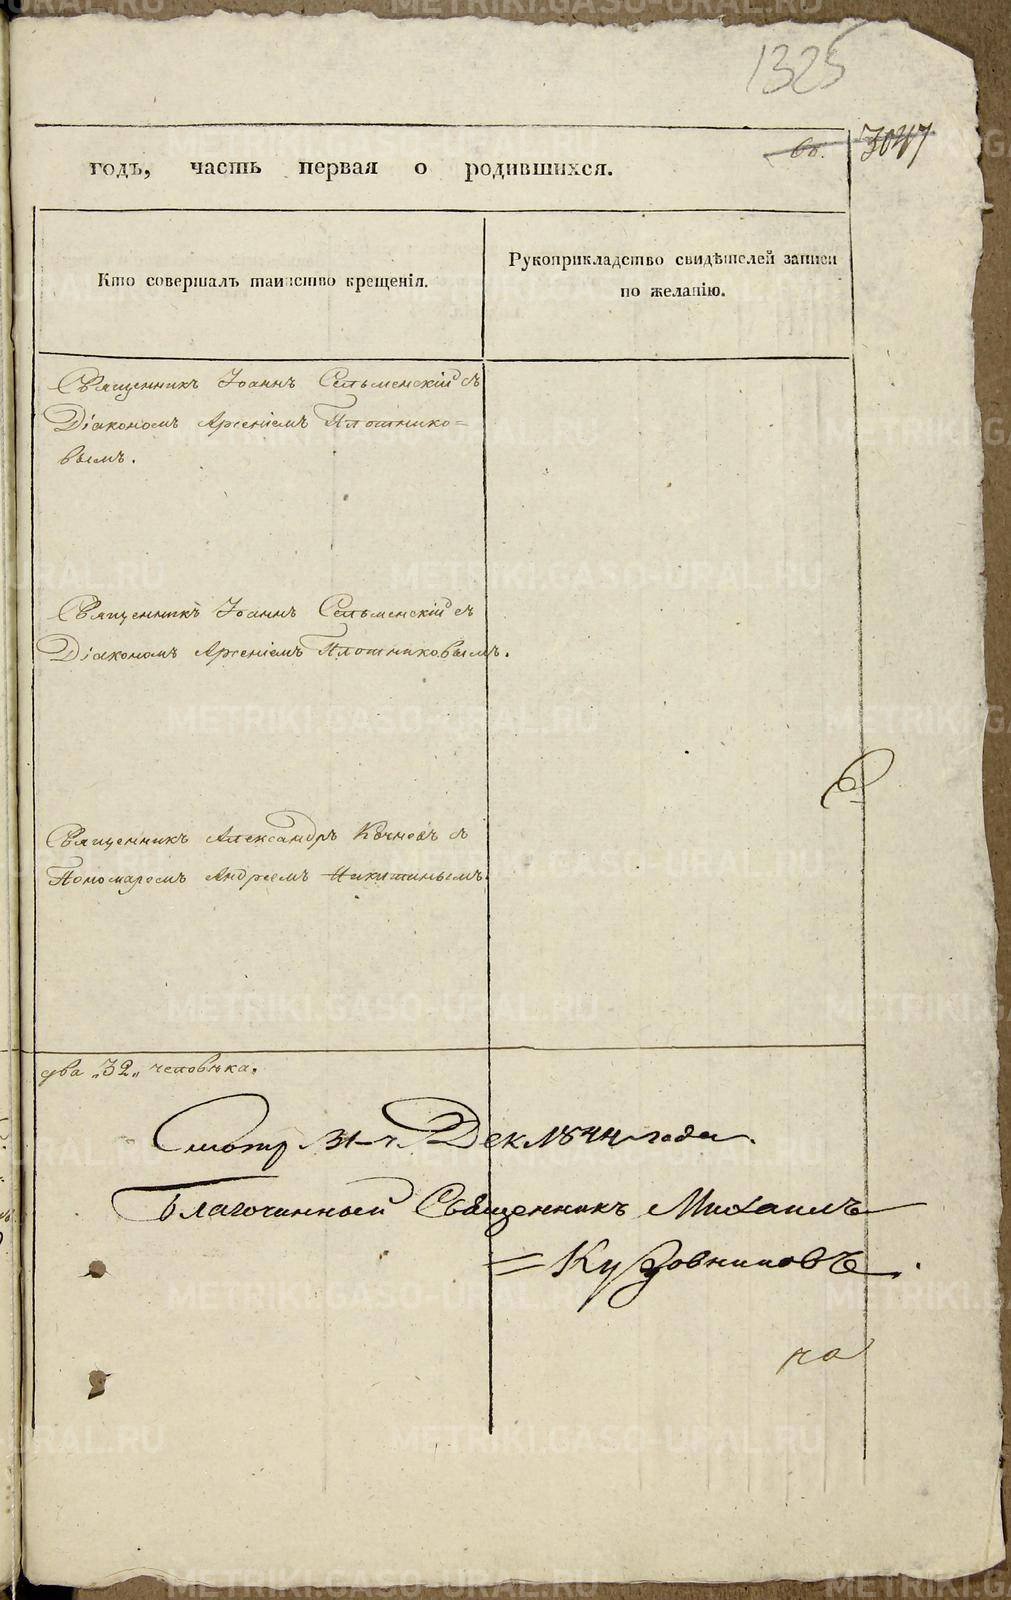 1325
годъ, часть первая о родившихся.
Кто совершалъ таинство крещенія.
Рукоприкладство свидѣтелей записи
по желанію.
Священникъ Іоаннъ Сельменскій съ
Діакономъ Арсеніемъ Плотнико=
вымъ.
Священникъ Іоаннъ Сельменскій съ
Діакономъ Арсеніемъ Плотниковымъ.
Священникъ Александръ Кочневъ съ
Пономаремъ Андреемъ Никитинымъ.
два „32„ человѣка.
Смотр 31-ч Дек 1844 года.
Благочинный Священникъ Михаилъ
= Кудовниковъ.
METRIKI.GASO-URAL.RU